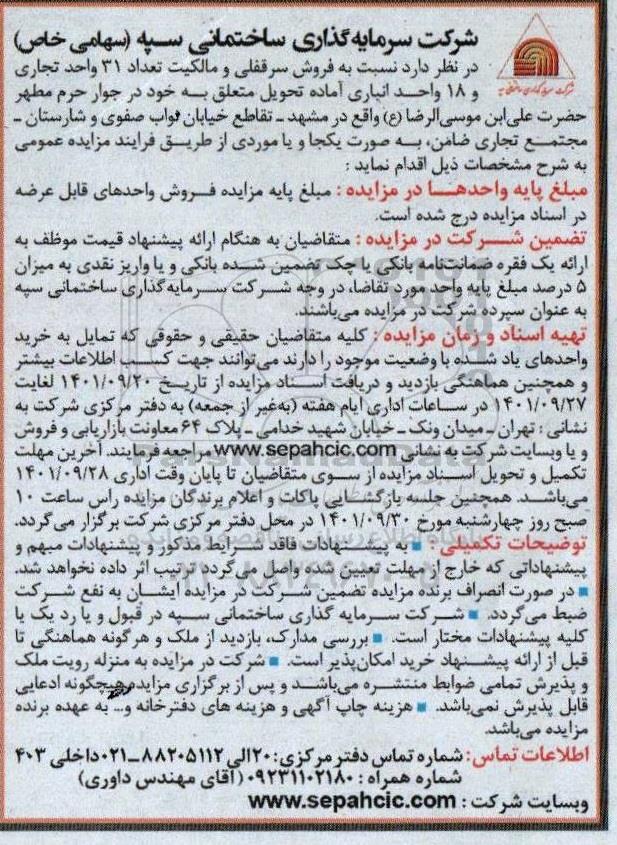 شرکت سرمایه‌گذاری ساختمانی سپه (سهامی خاص)
در نظر دارد نسبت به فروش سرقفلی و مالکیت تعداد ۳۱ واحد تجاری
و ۱۸ واحد انباری آماده تحویل متعلق به خود در جوار حرم مطهر
حضرت علی‌ابن موسی‌الرضا (ع) واقع در مشهد ـ تقاطع خیابان نواب صفوی و شارستان ـ
مجتمع تجاری ضامن، به صورت یکجا و یا موردی از طریق فرایند مزایده عمومی
به شرح مشخصات ذیل اقدام نماید :
مبلغ پایه واحدها در مزایده : مبلغ پایه مزایده فروش واحدهای قابل عرضه
در اسناد مزایده درج شده است.
تضمین شرکت در مزایده : متقاضیان به هنگام ارائه پیشنهاد قیمت موظف به
ارائه یک فقره ضمانت‌نامه بانکی یا چک تضمین شده بانکی و یا واریز نقدی به میزان
۵ درصد مبلغ پایه واحد مورد تقاضا، در وجه شرکت سرمایه‌گذاری ساختمانی سپه
به عنوان سپرده شرکت در مزایده می‌باشند.
تهیه اسناد و زمان مزایده : کلیه متقاضیان حقیقی و حقوقی که تمایل به خرید
واحدهای یاد شده با وضعیت موجود را دارند می‌توانند جهت کسب اطلاعات بیشتر
و همچنین هماهنگی بازدید و دریافت اسناد مزایده از تاریخ ۱۴۰۱/۰۹/۲۰ لغایت
۱۴۰۱/۰۹/۲۷ در ساعات اداری ایام هفته (به‌غیر از جمعه) به دفتر مرکزی شرکت به
نشانی : تهران ـ میدان ونک ـ خیابان شهید خدامی ـ پلاک ۶۴ معاونت بازاریابی و فروش
و یا وبسایت شرکت به نشانی www.sepahcic.com مراجعه فرمایند. آخرین مهلت
تکمیل و تحویل اسناد مزایده از سوی متقاضیان تا پایان وقت اداری ۱۴۰۱/۰۹/۲۸
می‌باشد. همچنین جلسه بازگشایی پاکات و اعلام برندگان مزایده راس ساعت ۱۰
صبح روز چهارشنبه مورخ ۱۴۰۱/۰۹/۳۰ در محل دفتر مرکزی شرکت برگزار می‌گردد.
توضیحات تکمیلی : ■ به پیشنهادات فاقد شرایط مذکور و پیشنهادات مبهم و
پیشنهاداتی که خارج از مهلت تعیین شده واصل می‌گردد ترتیب اثر داده نخواهد شد.
■ در صورت انصراف برنده مزایده تضمین شرکت در مزایده ایشان به نفع شرکت
ضبط می‌گردد. ■ شرکت سرمایه گذاری ساختمانی سپه در قبول و یا رد یک یا
کلیه پیشنهادات مختار است. ■ بررسی مدارک، بازدید از ملک و هرگونه هماهنگی تا
قبل از ارائه پیشنهاد خرید امکان‌پذیر است. ■ شرکت در مزایده به منزله رویت ملک
و پذیرش تمامی ضوابط منتشره می‌باشد و پس از برگزاری مزایده هیچگونه ادعایی
قابل پذیرش نمی‌باشد. ■ هزینه چاپ آگهی و هزینه های دفترخانه و... به عهده برنده
مزایده می‌باشد.
اطلاعات تماس: شماره تماس دفتر مرکزی: ۲۰الی ۸۸۲۰۵۱۱۲ـ۰۲۱داخلی ۴۰۳
شماره همراه : ۰۹۲۳۱۱۰۲۱۸۰ (آقای مهندس داوری)
وبسایت شرکت : www.sepahcic.com